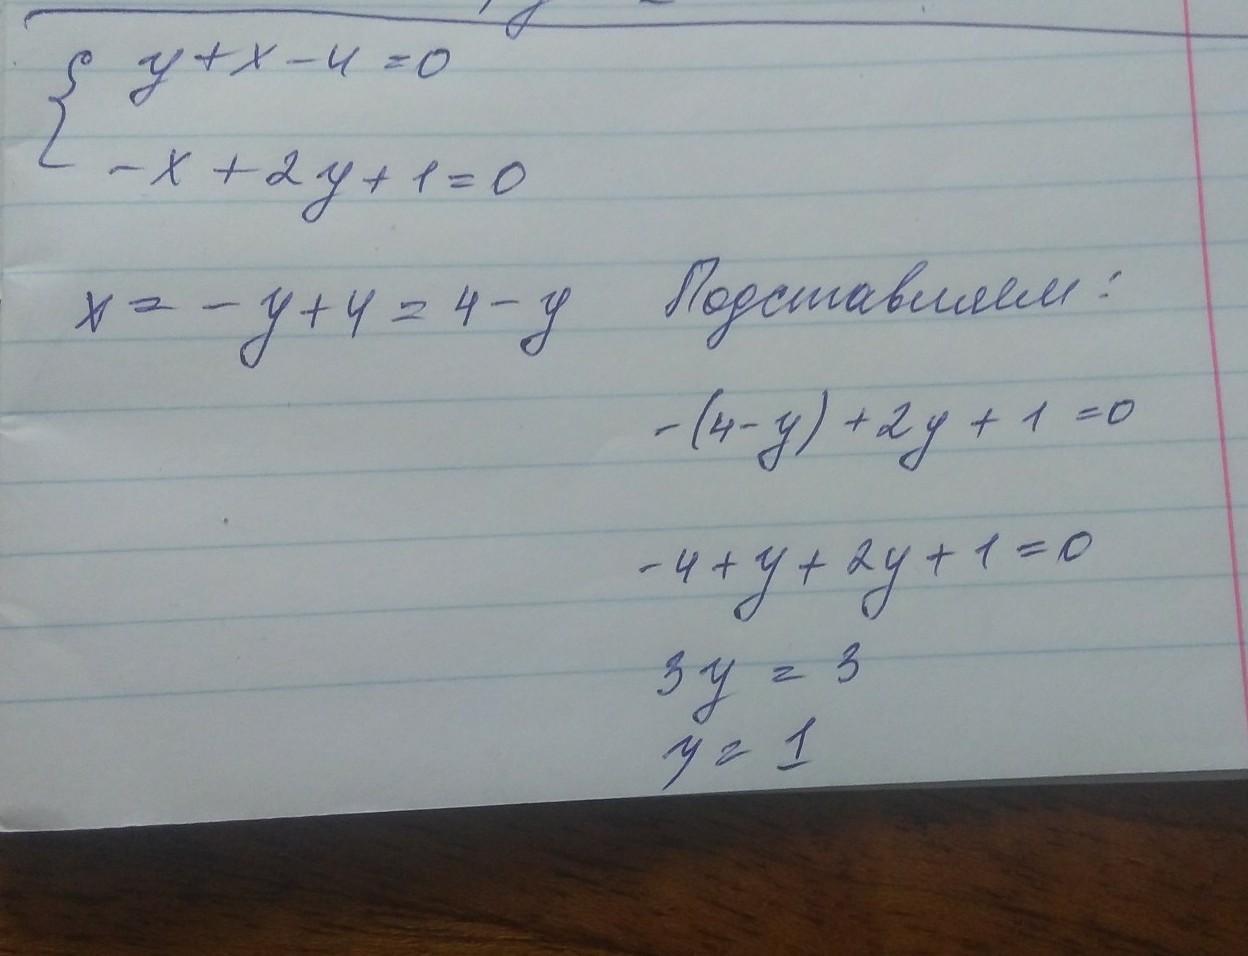 y + x - 4 = 0
- x + 2y + 1 = 0
x = - y + 4 = 4 - y
Подставляем:
-(4-y) + 2y + 1 = 0
-4 + y + 2y + 1 = 0
3y = 3
y = 1